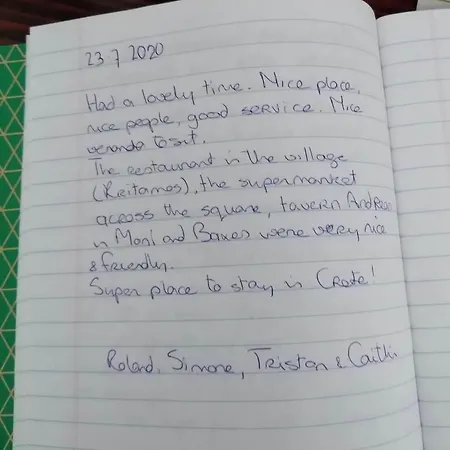 23 7 2020
Had a lovely time. Nice place,
nice people, good service. Nice
veranda to sit.
The restaurant in the village
(Reitamos), the supermarket
across the square, tavern Andreas
in Moni and Baxes were very nice
& friendly.
Super place to stay in Crete!
Roland, Simone, Tristan & Caitlin